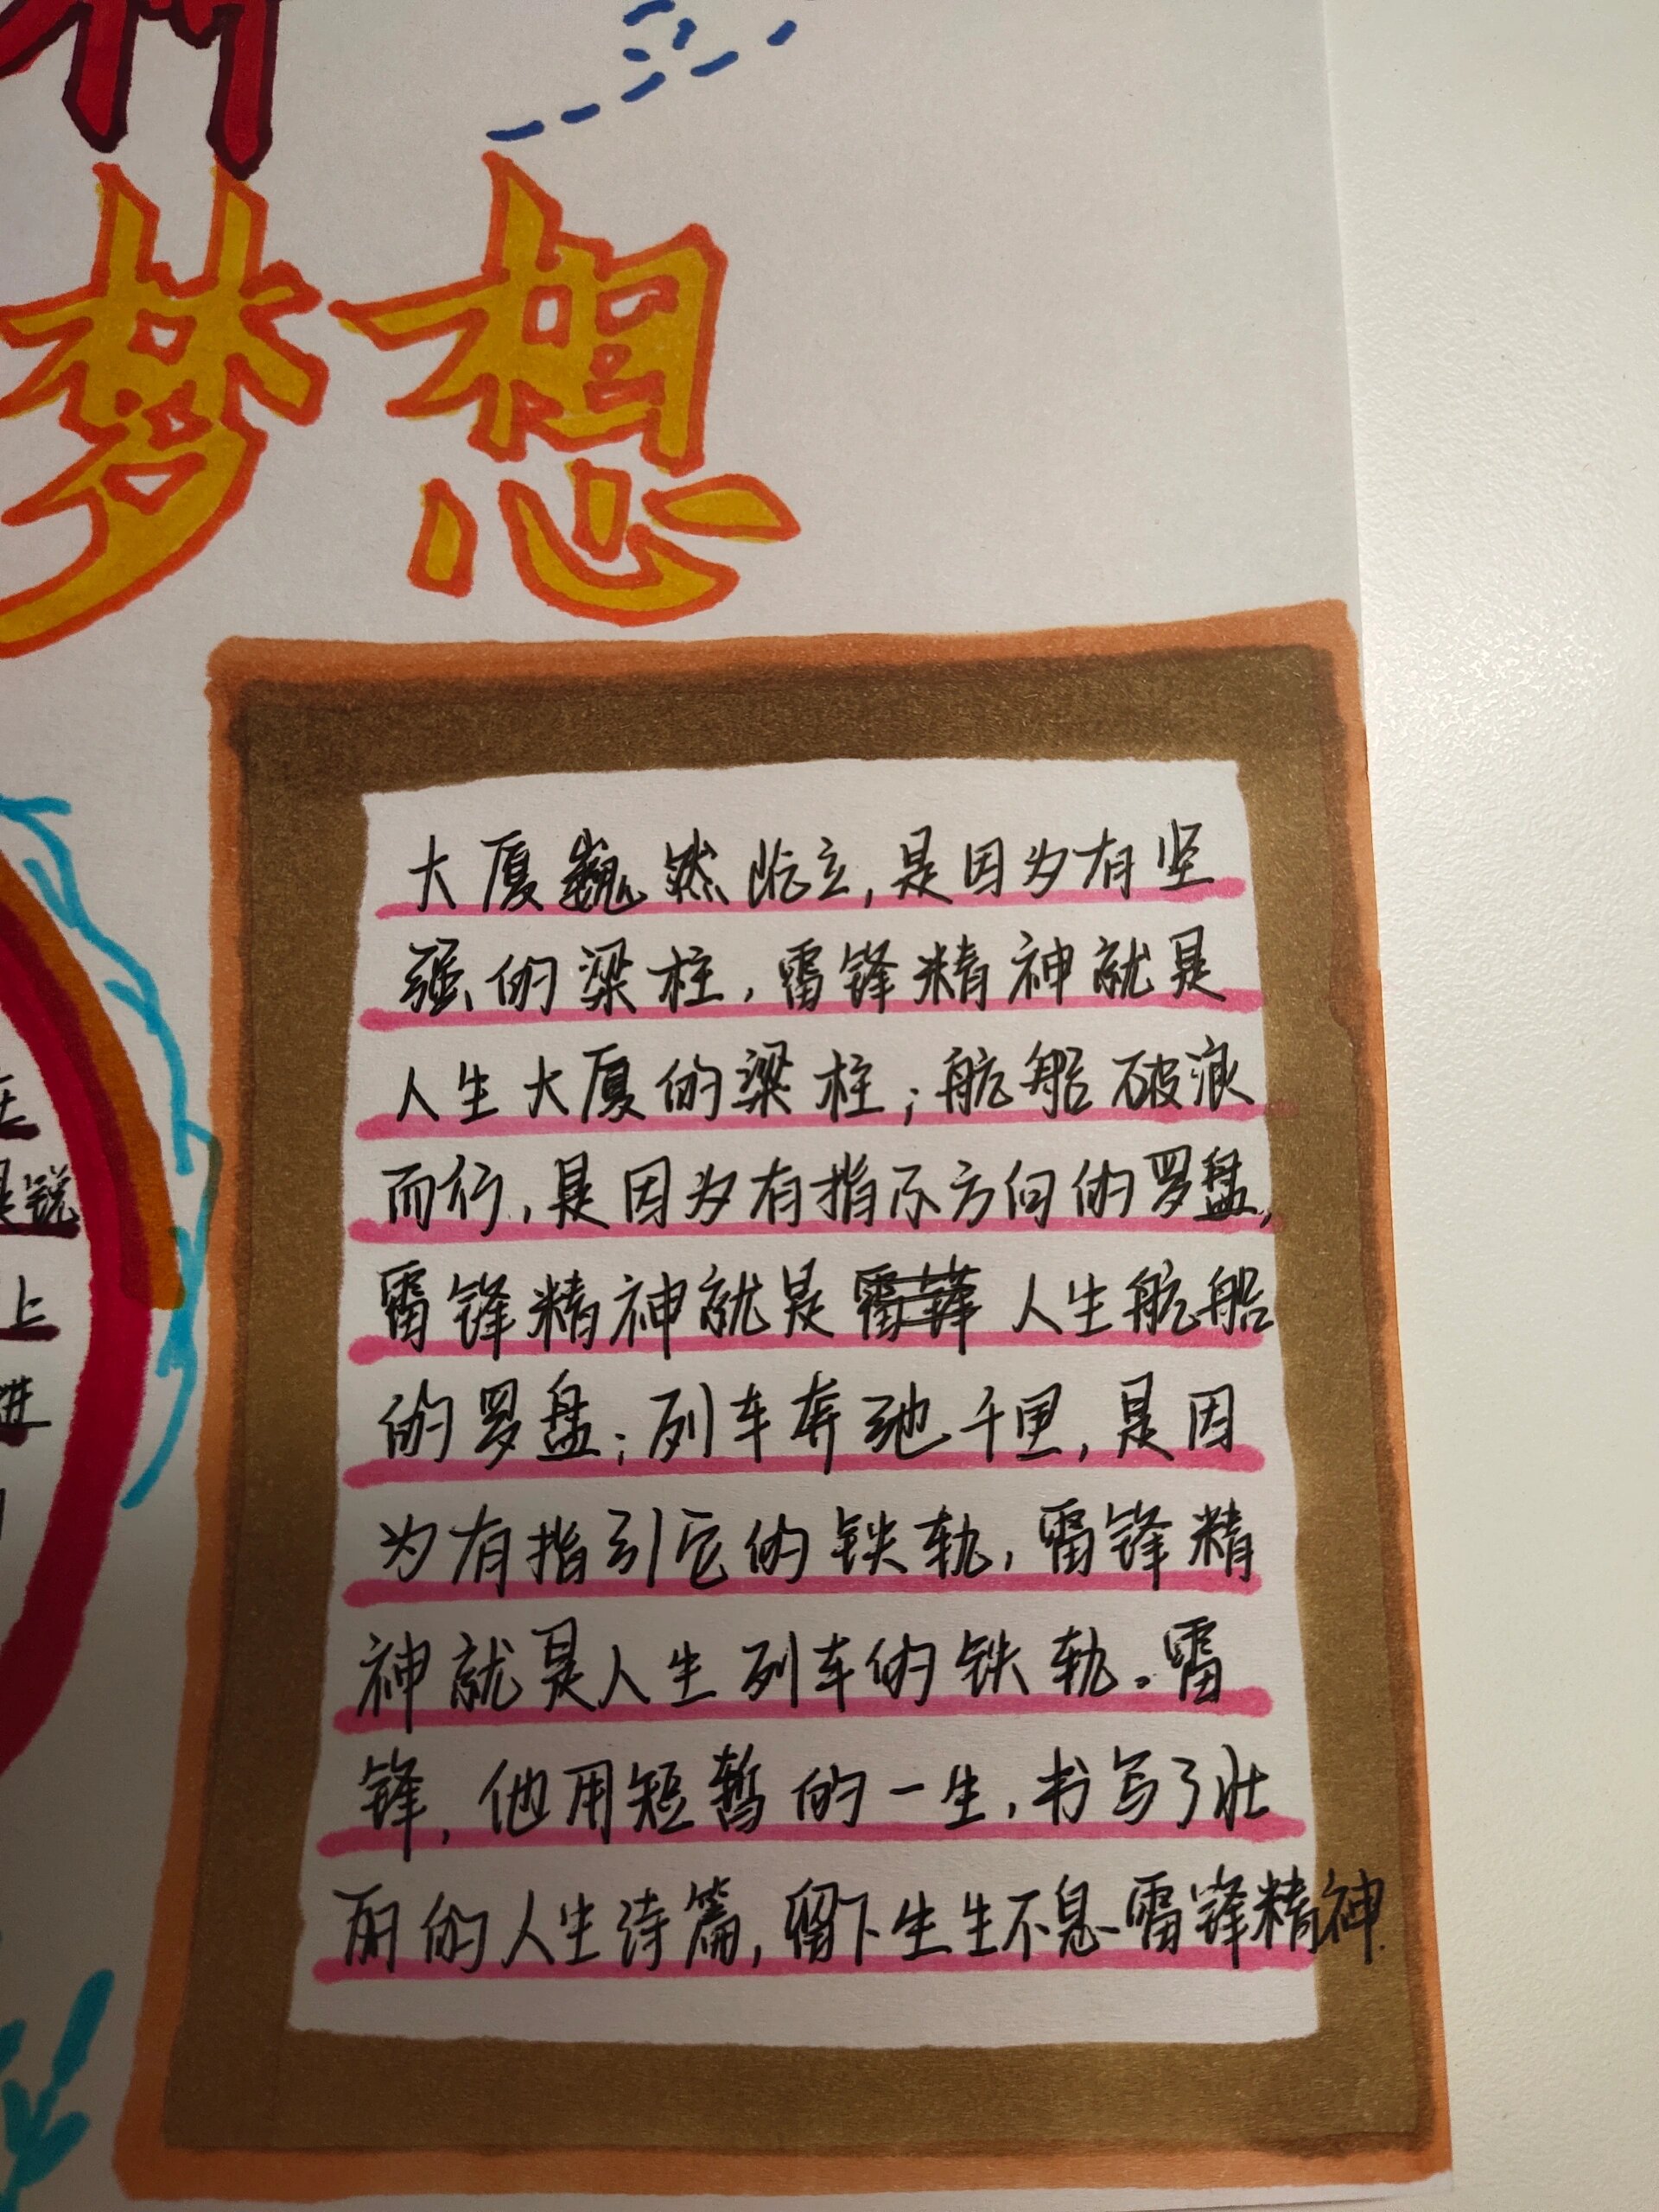 梦想
大厦巍然屹立,是因为有坚
强的梁柱,雷锋精神就是
人生大厦的梁柱;航船破浪
而行,是因为有指示方向的罗盘,
雷锋精神就是雷锋人生航船
的罗盘;列车奔驰千里,是因
为有指引它的铁轨,雷锋精
神就是人生列车的铁轨。雷
锋,他用短暂的一生,书写了壮
丽的人生诗篇,留下生生不息雷锋精神.
上
进